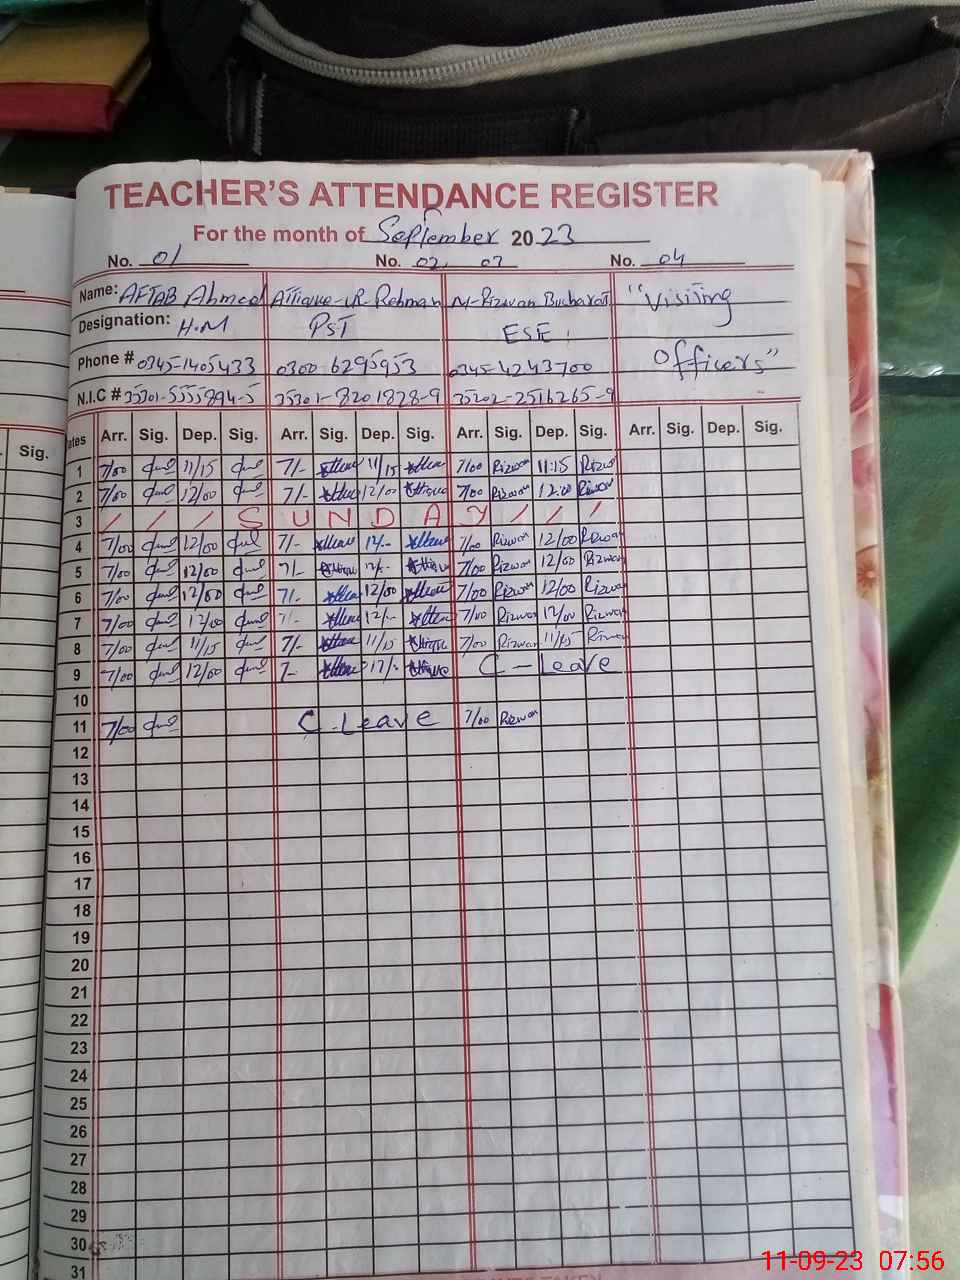 TEACHER'S ATTENDANCE REGISTER
For the month of September 2023
No. 01 No. 02, 03 No. 04
Name: AFTAB Ahmed Attique-uR-Rehman M-Rizwan Busharat "Visiting
Designation: H.M PST ESE
Phone # 0345-1405433 0300-6295953 0345-4243700 Officers"
N.I.C # 35301-5555894-5 35301-8201828-9 35202-2516265-9
Dates Arr. Sig. Dep. Sig. Arr. Sig. Dep. Sig. Arr. Sig. Dep. Sig. Arr. Sig. Dep. Sig.
Sig.
1 7/00 11/15 7/- 11/15 7/00 Rizwan 11:15 Rizwan
2 7/00 12/00 7/- 12/00 7/00 Rizwan 12:00 Rizwan
3 / / / S U N D A Y / / /
4 7/00 12/00 7/- 12/- 7/00 Rizwan 12/00 Rizwan
5 7/00 12/00 7/- 12/- 7/00 Rizwan 12/00 Rizwan
6 7/00 12/00 7/- 12/00 7/00 Rizwan 12/00 Rizwan
7 7/00 12/00 7/- 12/- 7/00 Rizwan 12/00 Rizwan
8 7/00 11/15 7/- 11/15 7/00 Rizwan 11/15 Rizwan
9 7/00 12/00 7- 12/- C-Leave
10
11 7/00 C-Leave 7/00 Rizwan
12
13
14
15
16
17
18
19
20
21
22
23
24
25
26
27
28
29
30
31
11-09-23 07:56